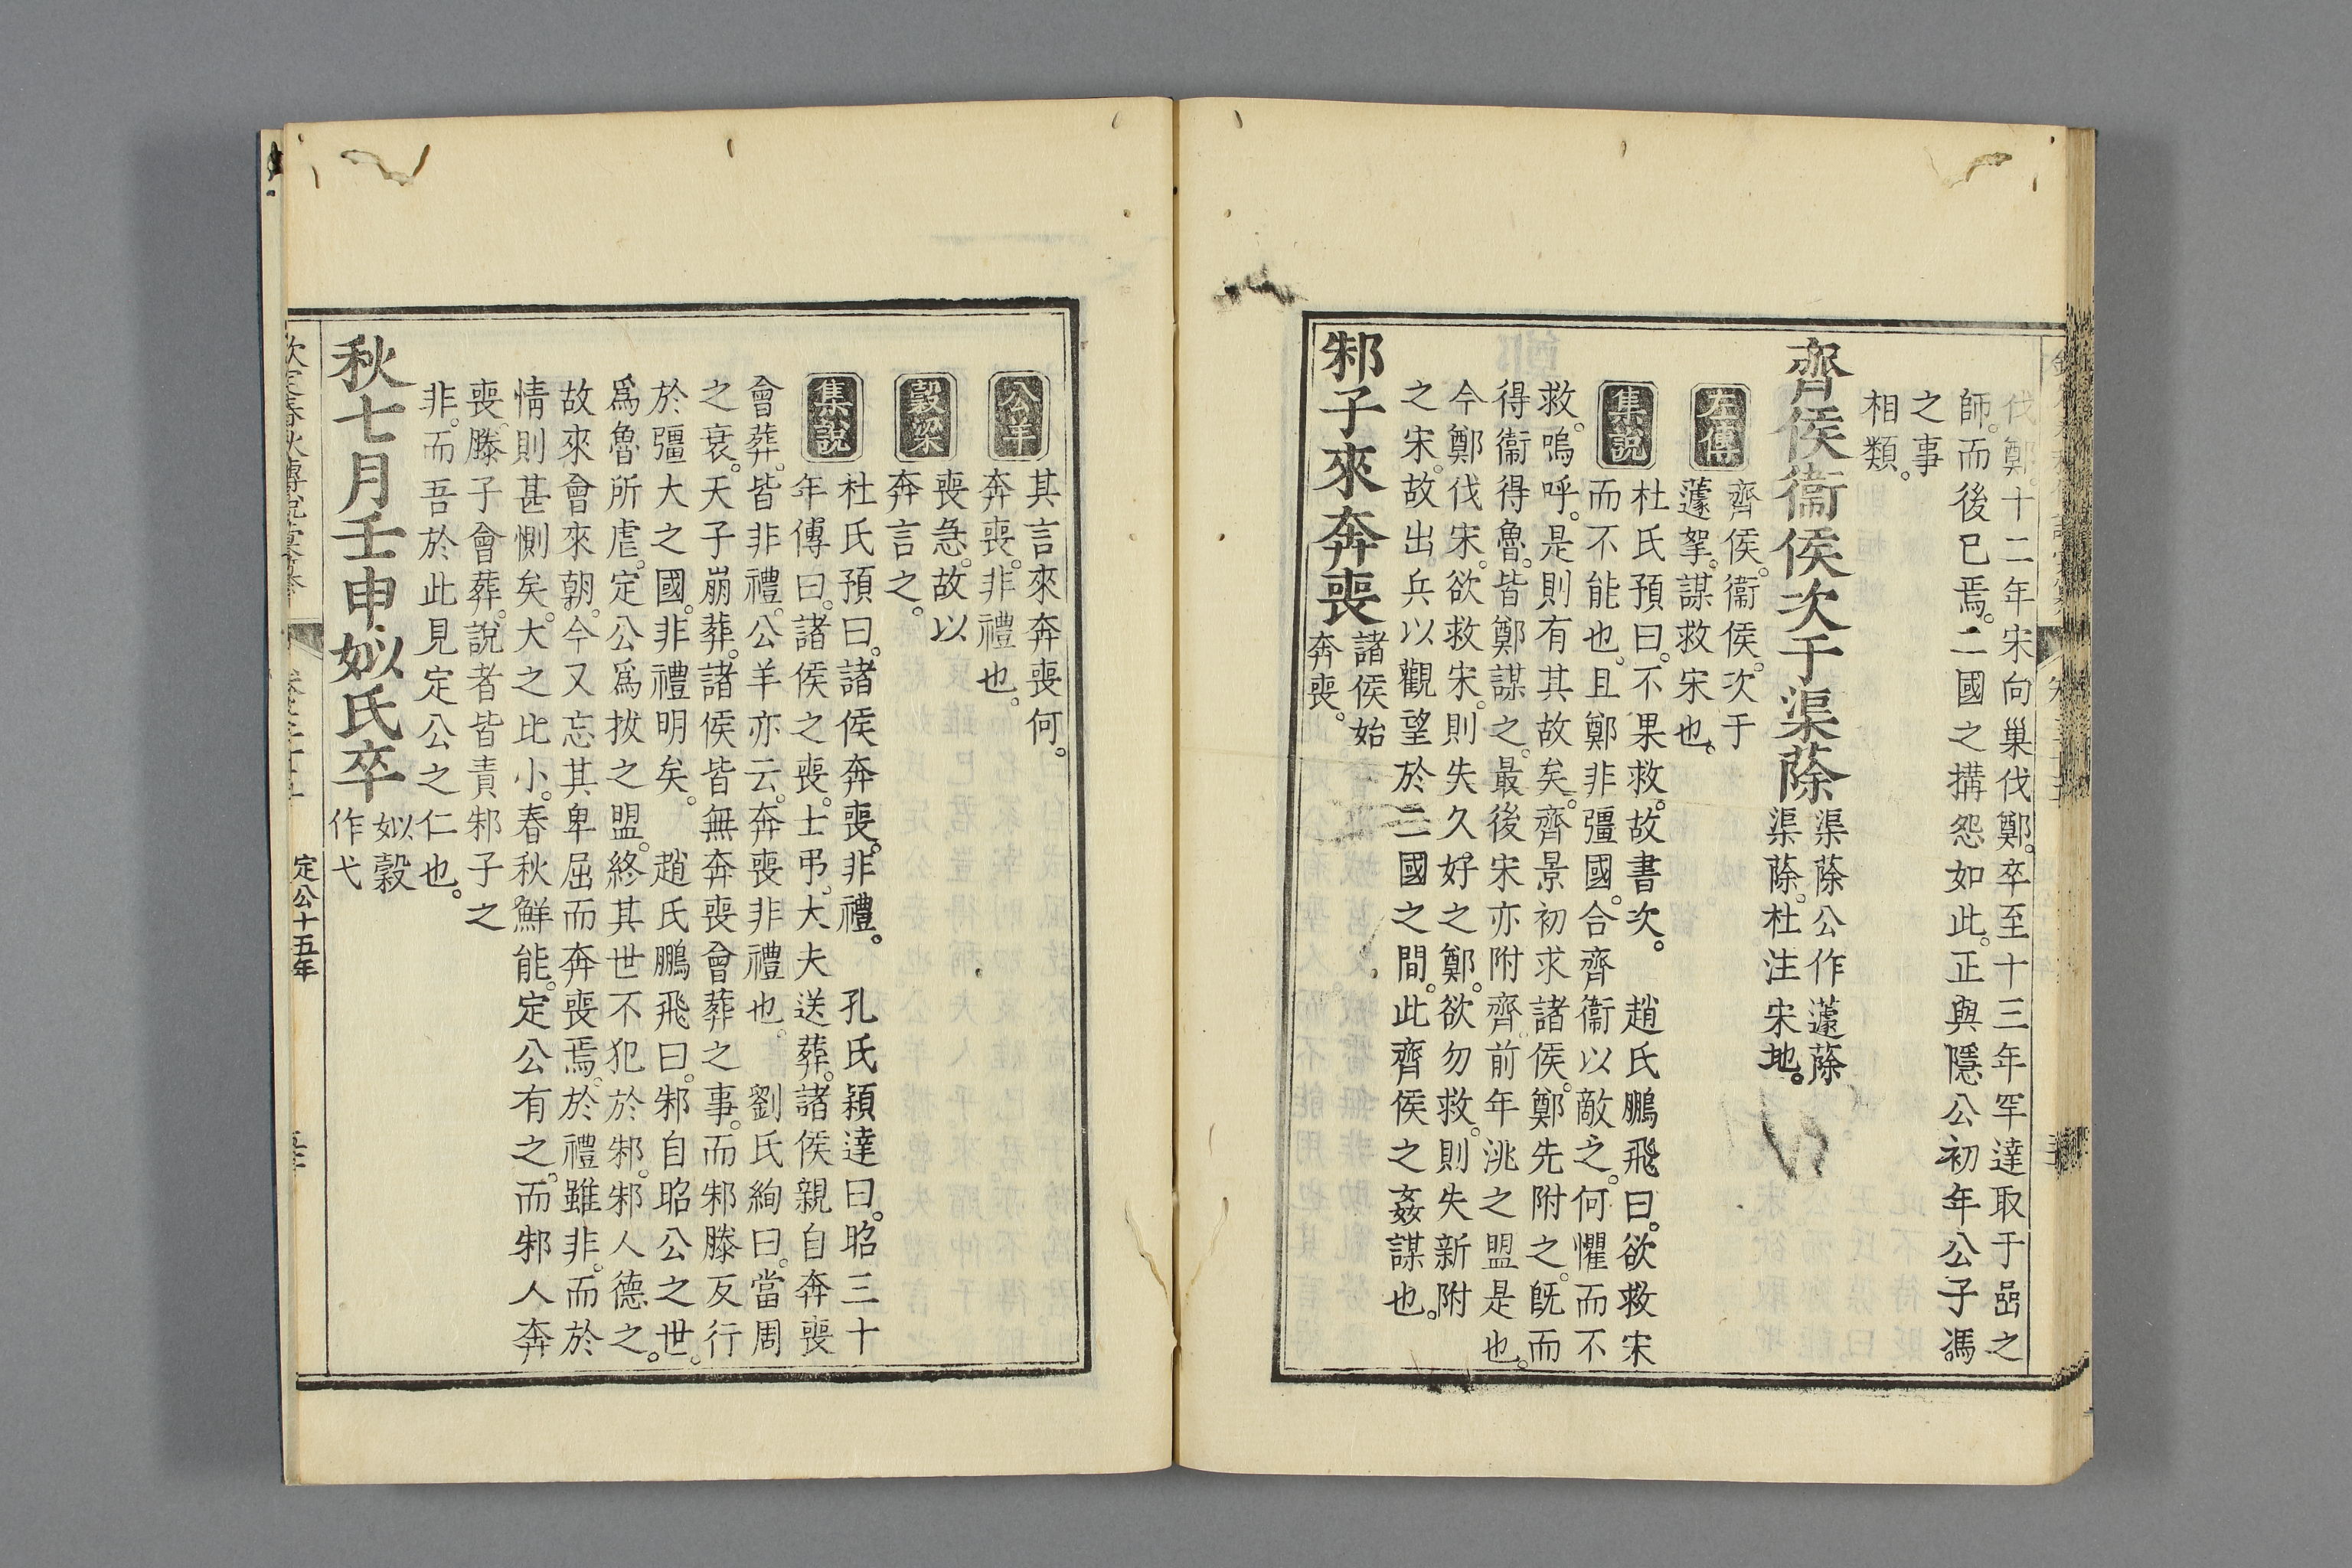 伐鄭。十二年宋向巢伐鄭。卒至十三年罕達取于嵒之
師。而後已焉。二國之搆怨如此。正與隱公初年公子馮
之事
相類。
齊侯衞侯次于渠蒢
渠蒢公作蘧蒢
渠蒢。杜注宋地。
左傳
齊侯。衞侯。次于
蘧挐。謀救宋也。
集說
杜氏預曰。不果救。故書次。 趙氏鵬飛曰。欲救宋
而不能也。且鄭非彊國。合齊衞以敵之。何懼而不
救。嗚呼。是則有其故矣。齊景初求諸侯。鄭先附之。旣而
得衞得魯。皆鄭謀之。最後宋亦附齊。前年洮之盟是也。
今鄭伐宋。欲救宋。則失久好之鄭。欲勿救。則失新附
之宋。故出兵以觀望於二國之間。此齊侯之姦謀也。
邾子來奔喪
諸侯始
奔喪。
公羊
其言來奔喪何。
奔喪。非禮也。
穀梁
喪急。故以
奔言之。
集說
杜氏預曰。諸侯奔喪。非禮。 孔氏穎達曰。昭三十
年傳曰。諸侯之喪。士弔。大夫送葬。諸侯親自奔喪
會葬。皆非禮。公羊亦云。奔喪非禮也。 劉氏絢曰。當周
之衰。天子崩葬。諸侯皆無奔喪會葬之事。而邾滕反行
於彊大之國。非禮明矣。 趙氏鵬飛曰。邾自昭公之世。
爲魯所虐。定公爲拔之盟。終其世不犯於邾。邾人德之。
故來會來朝。今又忘其卑屈而奔喪焉。於禮雖非。而於
情則甚惻矣。大之比小。春秋鮮能。定公有之。而邾人奔
喪。滕子會葬。說者皆責邾子之
非。而吾於此見定公之仁也。
秋七月壬申姒氏卒
姒穀
作弋
定公十五年